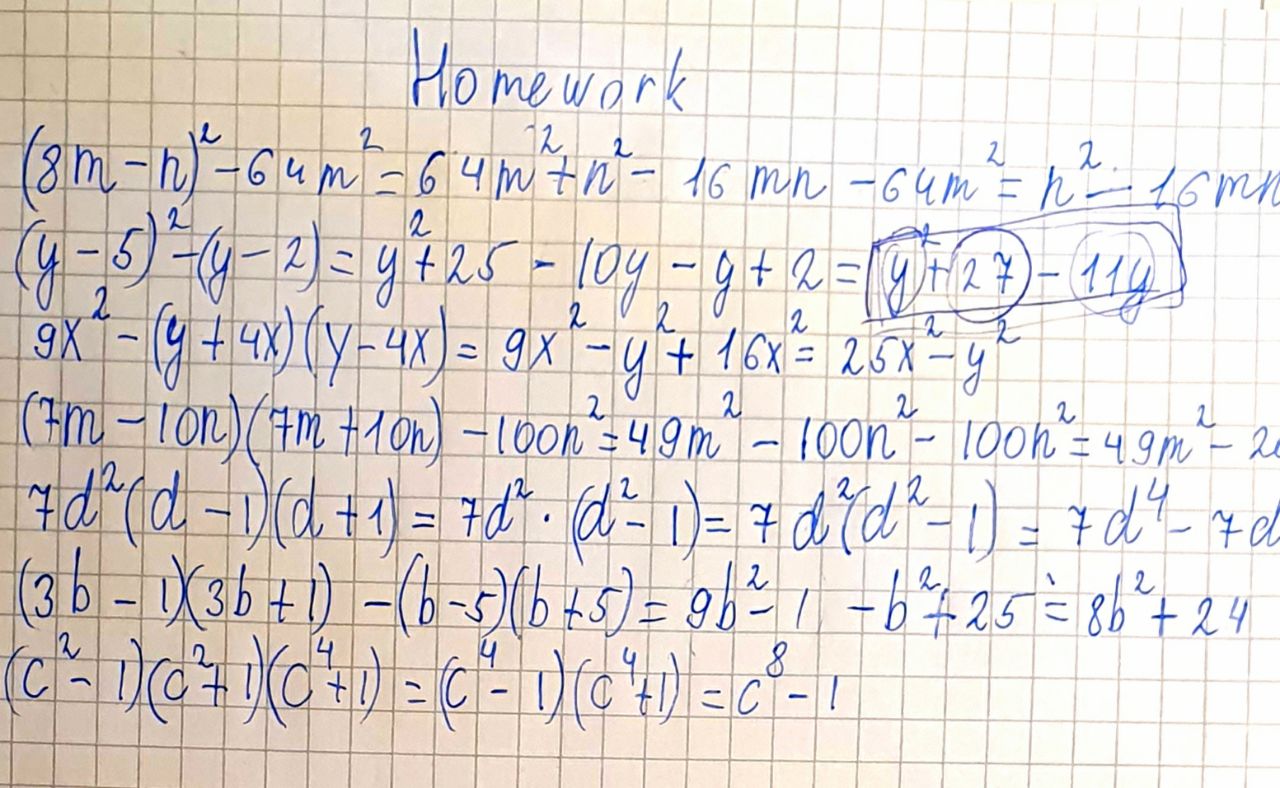 Homework
(8m - n)² - 64m² = 64m² + n² - 16mn - 64m² = n² - 16mn
(y - 5)² - (y - 2) = y² + 25 - 10y - y + 2 = y² + 27 - 11y
9x² - (y + 4x)(y - 4x) = 9x² - y² + 16x² = 25x² - y²
(7m - 10n)(7m + 10n) - 100n² = 49m² - 100n² - 100n² = 49m² - 2
7d²(d - 1)(d + 1) = 7d² · (d² - 1) = 7d²(d² - 1) = 7d⁴ - 7d
(3b - 1)(3b + 1) - (b - 5)(b + 5) = 9b² - 1 - b² + 25 = 8b² + 24
(c² - 1)(c² + 1)(c⁴ + 1) = (c⁴ - 1)(c⁴ + 1) = c⁸ - 1